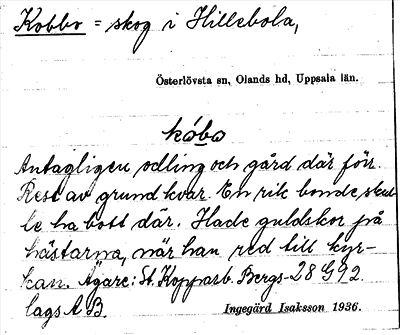 Kobbo = skog i Hillebola,
Österlövsta sn, Olands hd, Uppsala län.
kóbo
Antagligen odling och gård där förr.
Rest av grund kvar. En rik bonde skul-
le ha bott där. Hade guldskor på
hästarna, när han red till kyr-
kan. Ägare: St. Kopparb. Bergs- 28 G 92.
lags A.B.
Ingegärd Isaksson 1936.